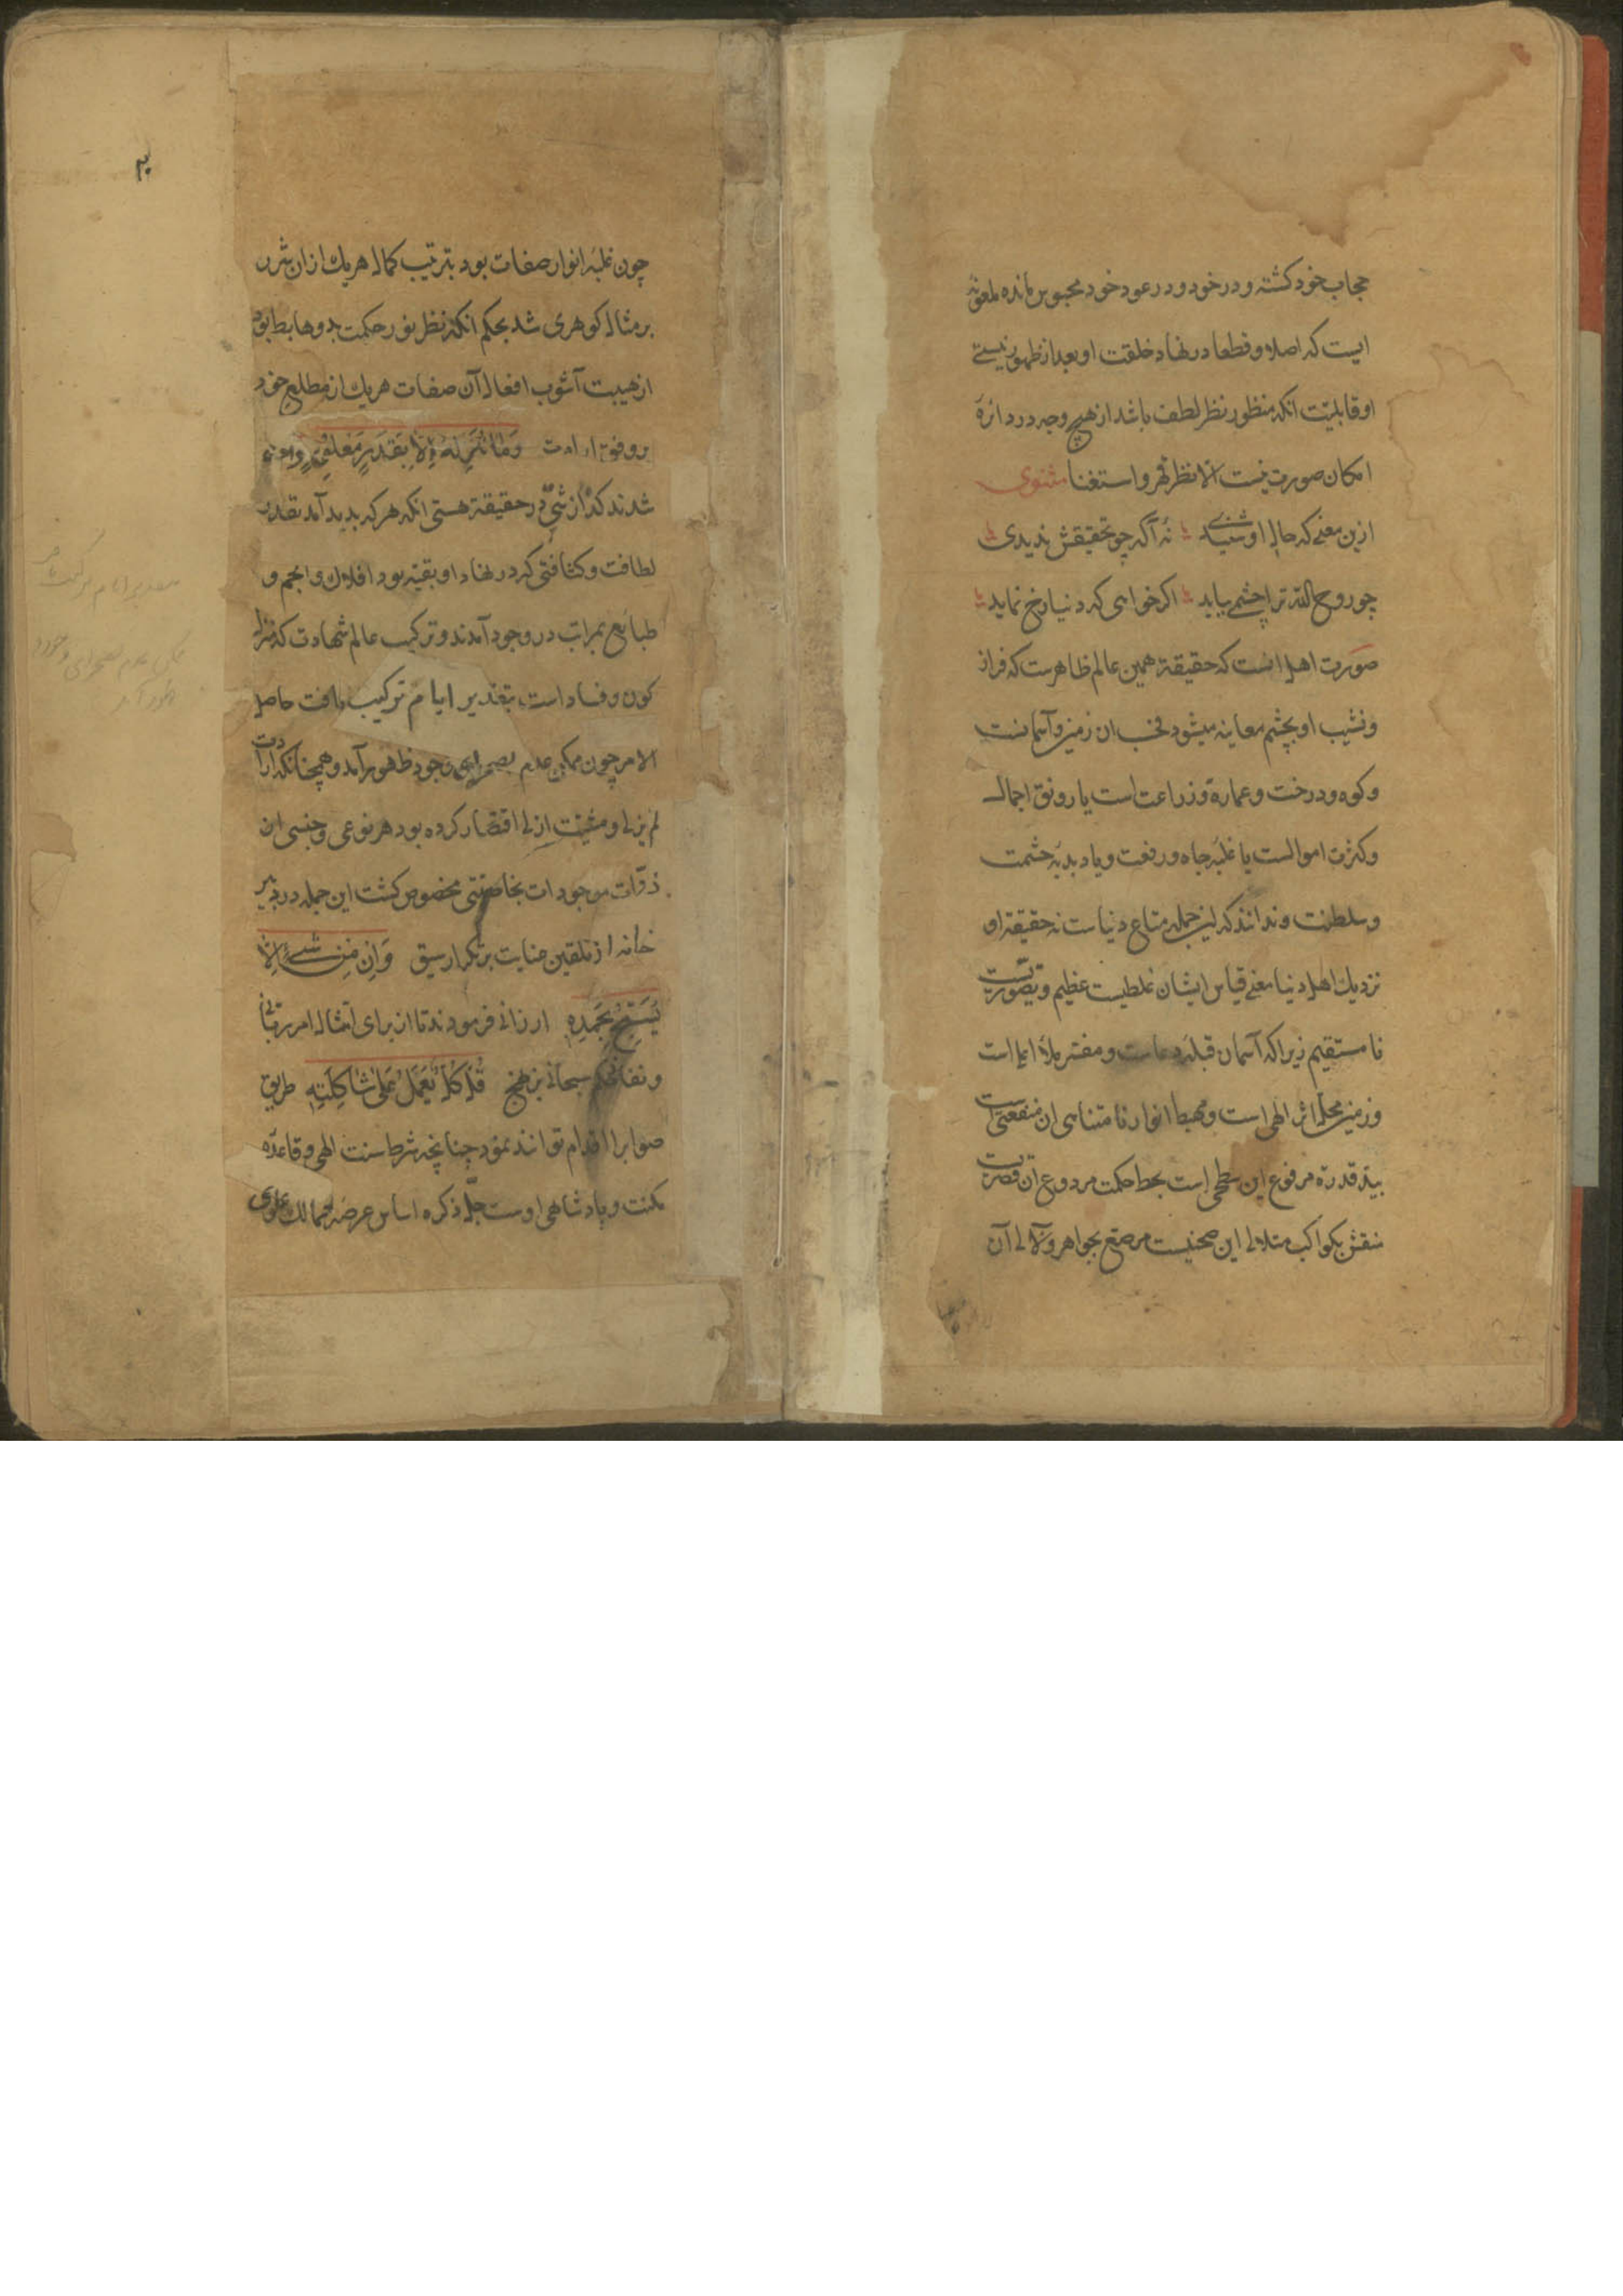 حجاب خود کشته و در خود و در عود خود محبوس مانده ملعونه
ایست که اصلا و قطعا در نهاد خلقت او بعد از ظهور نیستی
او قابلیت انکه منظور نظر لطف باشد از هیچ وجه در دائره
امکان صورت نیست الا نظر قهر و استغنا مثنوی
ازین معنی که حال او شنیدی نه آکه چو تحقیقش ندیدی
چو روح الله ترا چشمی بباید اکر خواهی که دنیا رخ نماید
صورت اهل انست که حقیقة همین عالم ظاهرست که فراز
و نشیب او بچشم معاینه میشود محب ان زمین و آسمانست
و کوه و درخت و عمارة و زراعت است یا رونق اجمال
و کثرت اموالست یا غلبه جاه و رفعت و یا دبدبه حشمت
و سلطنت و ندانند که این جمله متاع دنیاست نه حقیقة او
نزدیك اهل دنیا معنی قیاس ایشان غلطیست عظیم و تصوریست
نا مستقیم زیرا که آسمان قبله دعاست و مفسر ملأ اعلی است
و زمین محل اثر الهی است و مهبط انوار نامتناهی ان منفعتی است
بید قدرة مرفوع این سطحی است بحط حکمت مردوع آن قصریست
منقش بکواکب متلالی این صحنیست مرصع بجواهر و لآلی آن
۲
چون غلبه انوار صفات بود بترتیب کمال هریك از ان شرر
بر مثال کوهری شد بحکم انکه نظر نور حکمت بدوها بطایق
از هیبت آشوب افعال آن صفات هریك از مطلع خود
بر وفق ارادت وَمَا نُنَزِّلُهُ إِلَّا بِقَدَرٍ مَعْلُومٍ
شدند که از شی در حقیقة هستی انکه هر که بدید آمد بقدر
لطافت و کثافتی که در نهاد او بقیه بود افلاك و انجم و
طبائع بمراتب در وجود آمدند و ترکیب عالم شهادت که منزل
کون و فساد است بتقدیر ایام ترکیب یافت حاصل
الامر چون ممکن عدم بصحرای وجود ظهور آمد و همچنانکه ارادت
لم یزلی و مشیت ازلی اقتضا کرده بود هر نوعی و جنسی ان
ذرات موجودات بخاصیتی مخصوص کشت این جمله در دبیر
خانه از تلقین عنایت بر تکرار سبق وَإِنْ مِنْ شَيْءٍ إِلَّا
يُسَبِّحُ بِحَمْدِهِ ارزانی فرمودند تا از برای امتثال امر ربانی
و نفاذ حکم سبحانی بر نهج قُلْ كُلٌّ يَعْمَلُ عَلَىٰ شَاكِلَتِهِ طریق
صواب را اقدام توانند نمود چنانچه شرط سنت الهی و قاعده
مکنت و پادشاهی اوست جلّ ذکره اساس عرضه ممالك علوی